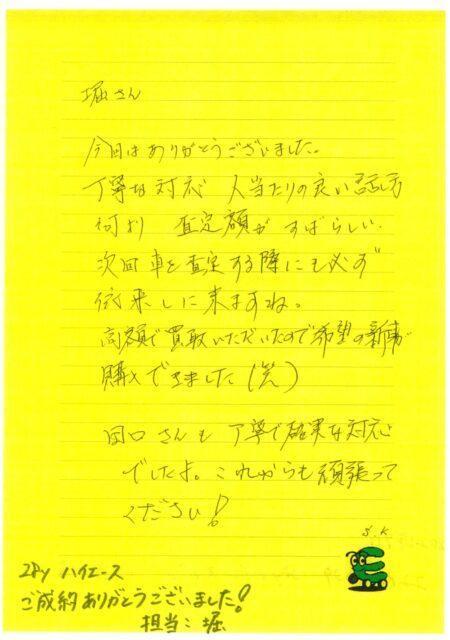 堀さん
今日はありがとうございました。
丁寧な対応 人当たりの良い話し方
何より 査定額が すばらしい.
次回車を査定する際にも必ず
依来しに来ますね。
高額で買取いただいたので希望の新車が
購入できました(笑)
田口さんも 丁寧で確実な対応
でしたよ。これからも頑張って
ください!
S.K
28y ハイエース
ご成約ありがとうございました!
担当:堀